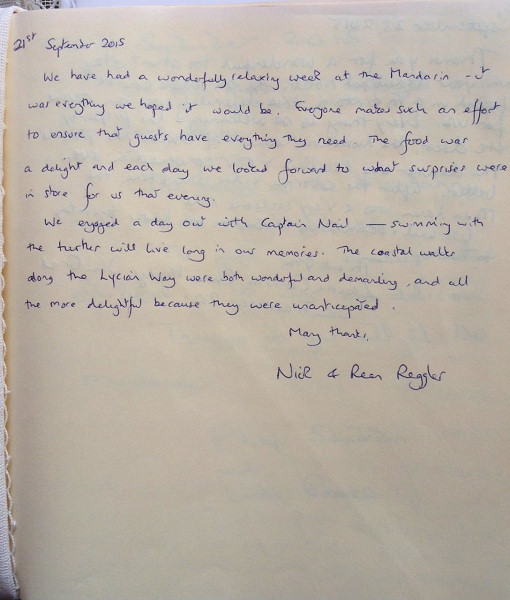 21st September 2015
We have had a wonderfully relaxing week at the Mandarin - it
was everything we hoped it would be. Everyone makes such an effort
to ensure that guests have everything they need. The food was
a delight and each day we looked forward to what surprises were
in store for us that evening.
We enjoyed a day out with Captain Nail — swimming with
the turtles will live long in our memories. The coastal walks
along the Lycian Way were both wonderful and demanding, and all
the more delightful because they were unanticipated.
Many thanks,
Nick &